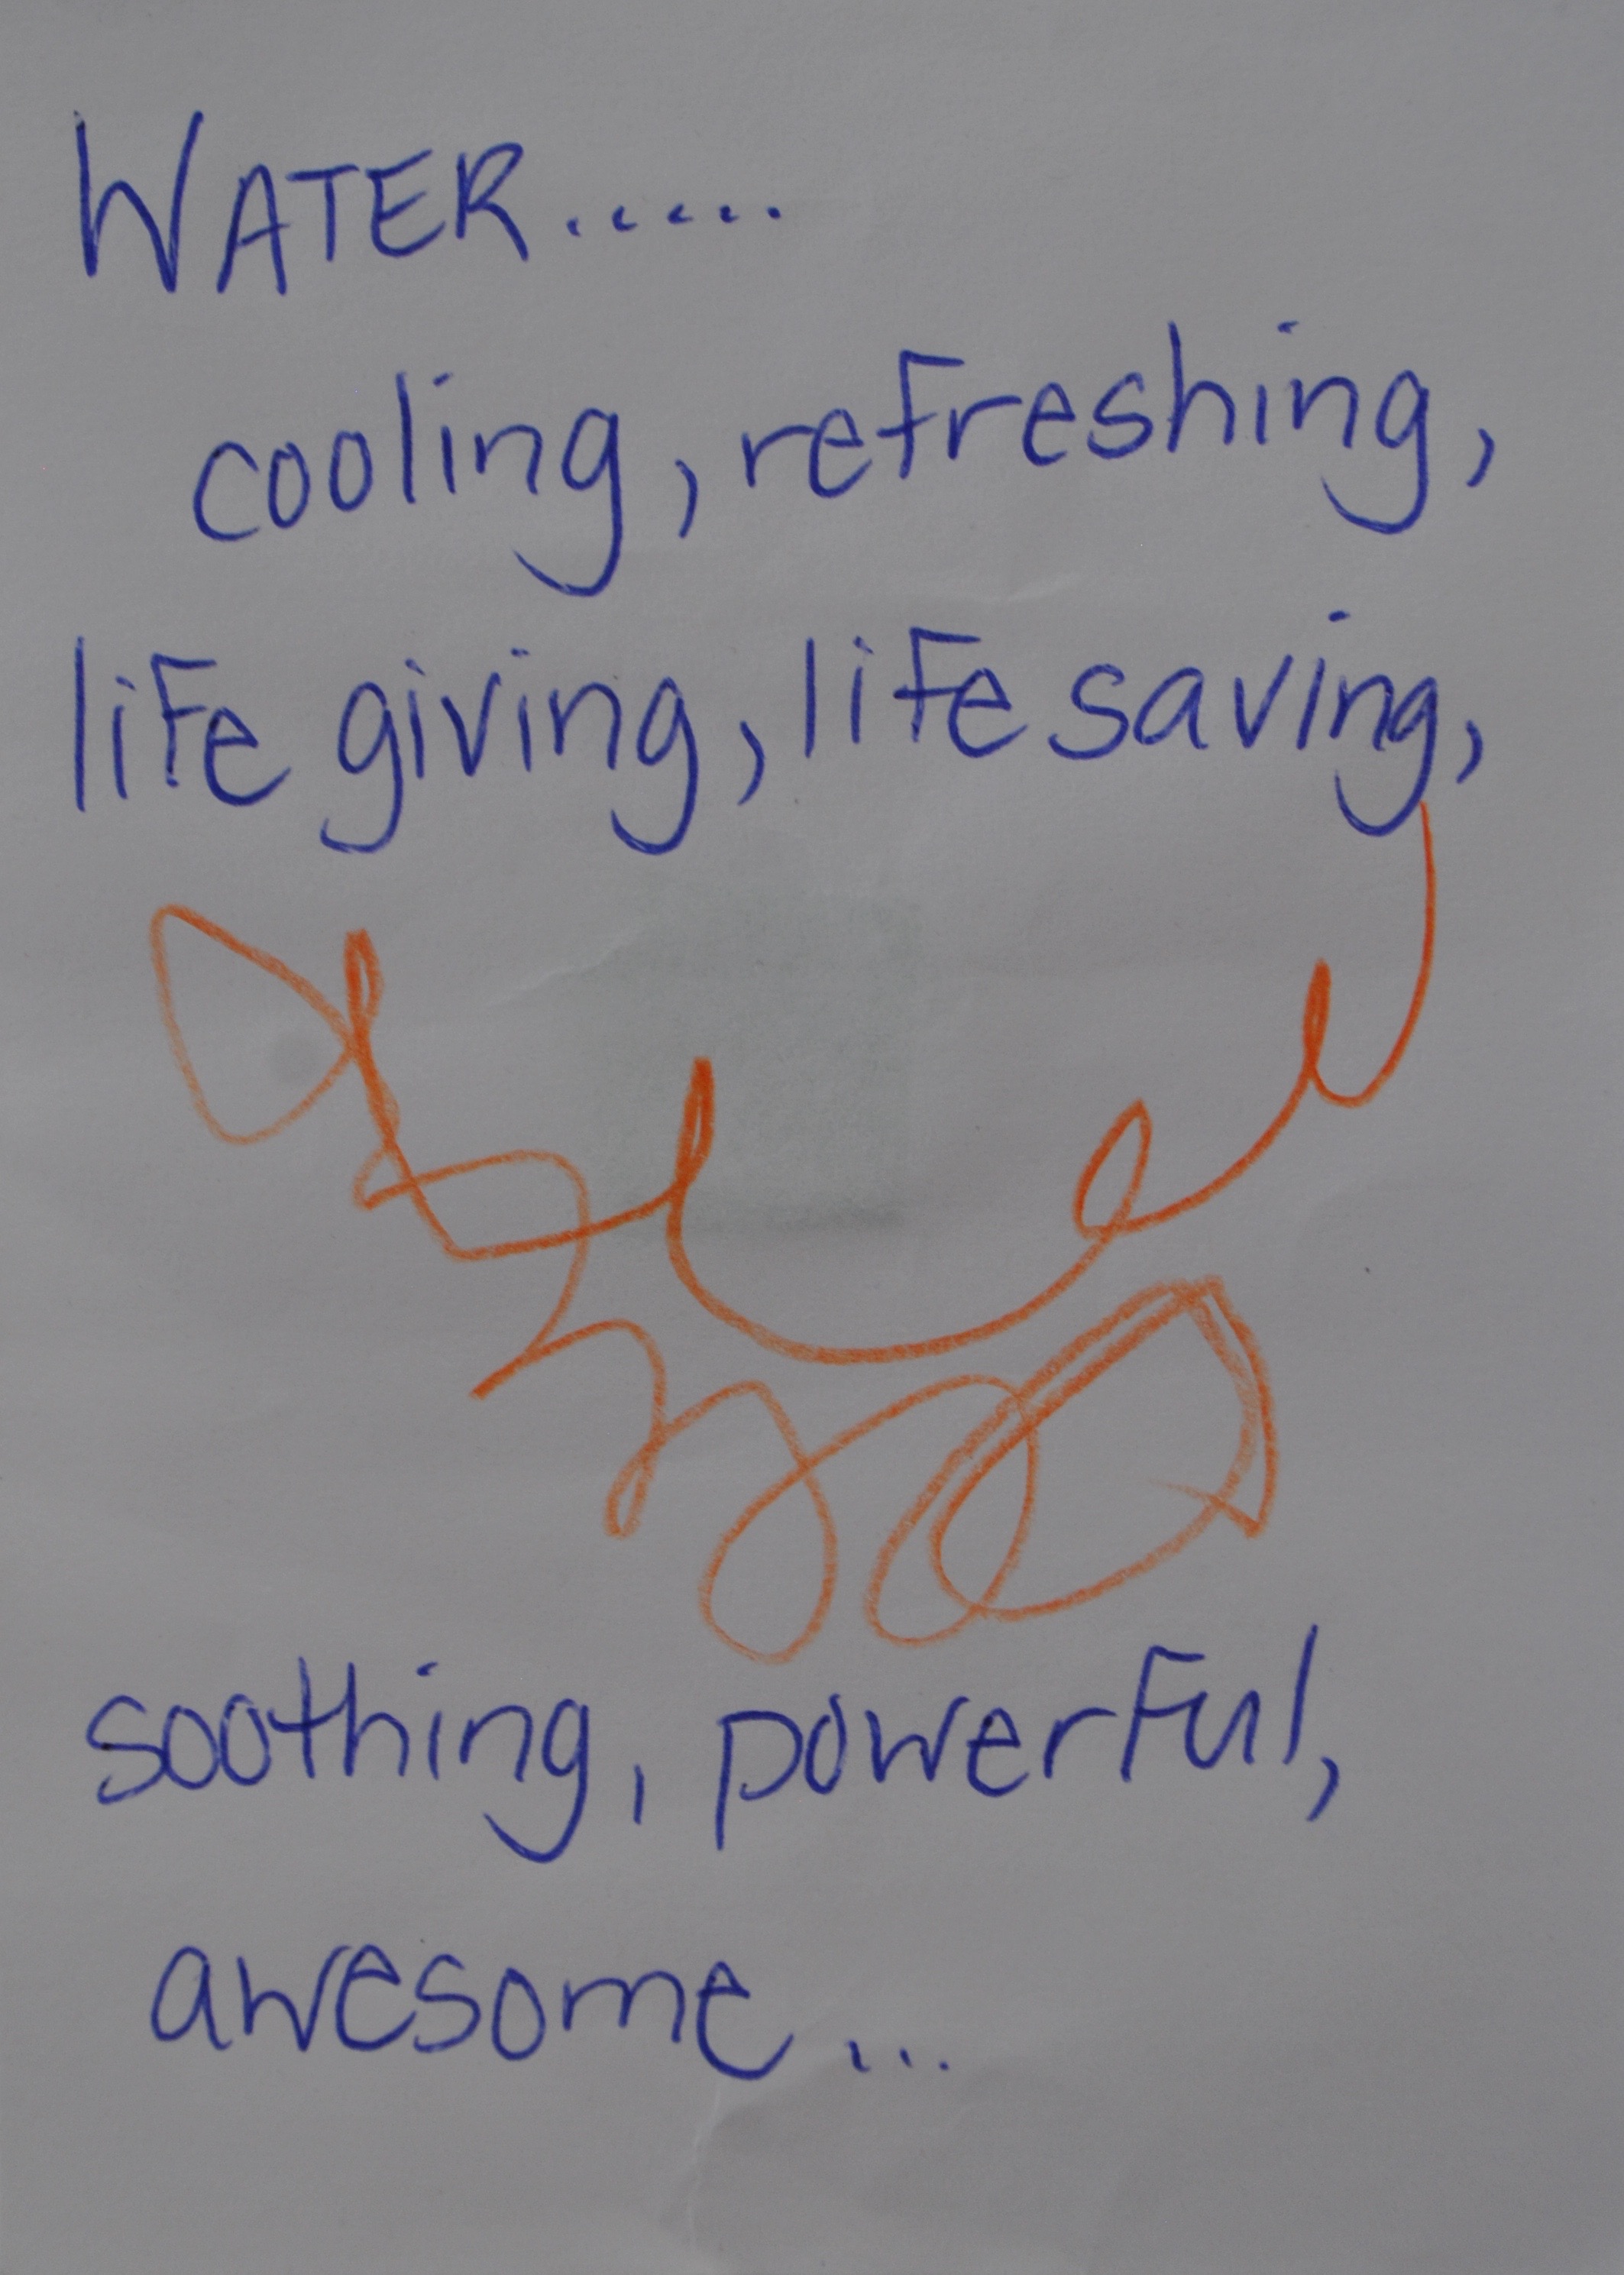 WATER.....
cooling, refreshing,
life giving, life saving,
soothing, powerful,
awesome...